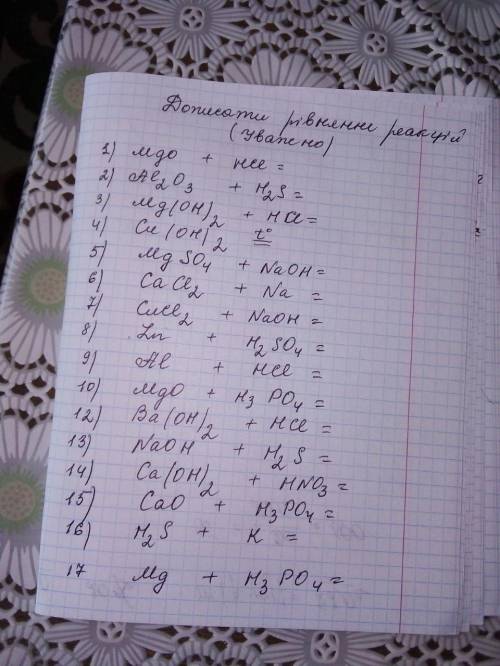 Дописати рівнянни реакцій
(Уважно)
1) MgO + HCl =
2) Al₂O₃ + H₂S =
3) Mg(OH)₂ + HCl =
4) Cu(OH)₂ t° =
5) MgSO₄ + NaOH =
6) CaCl₂ + Na =
7) CuCl₂ + NaOH =
8) Zn + H₂SO₄ =
9) Al + HCl =
10) MgO + H₃PO₄ =
12) Ba(OH)₂ + HCl =
13) NaOH + H₂S =
14) Ca(OH)₂ + HNO₃ =
15) CaO + H₃PO₄ =
16) H₂S + K =
17 Mg + H₃PO₄ =